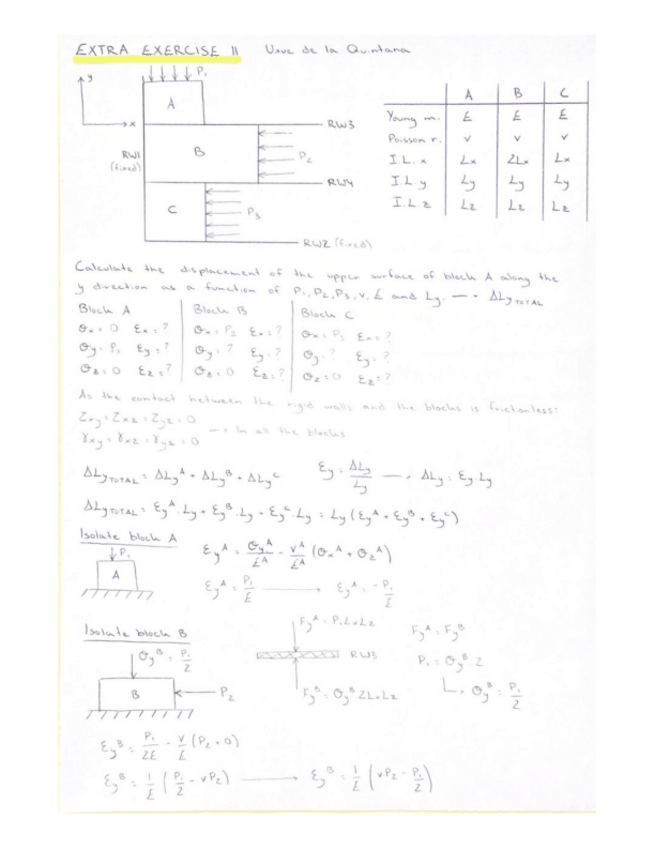 EXTRA EXERCISE 11 Uxue de la Quintana
y
P₁
A
x
RW3
RW1
(fixed)
B
P₂
RW4
C
P₃
RW2 (fixed)
A B C
Young m. E E E
Poisson r. ν ν ν
I.L. x Lx 2Lx Lx
I.L. y Ly Ly Ly
I.L. z Lz Lz Lz
Calculate the displacement of the upper surface of block A along the
y direction as a function of P₁, P₂, P₃, ν, E and Ly. → ΔLy TOTAL
Block A Block B Block C
σx = 0 εx = ? σx = P₂ εx = ? σx = P₃ εx = ?
σy = P₁ εy = ? σy = ? εy = ? σy = ? εy = ?
σz = 0 εz = ? σz = 0 εz = ? σz = 0 εz = ?
As the contact between the rigid walls and the blocks is frictionless:
τxy = τxz = τyz = 0
γxy = γxz = γyz = 0 → In all the blocks
ΔLy TOTAL = ΔLy^A + ΔLy^B + ΔLy^C εy = ΔLy/Ly → ΔLy = εy·Ly
ΔLy TOTAL = εy^A·Ly + εy^B·Ly + εy^C·Ly = Ly (εy^A + εy^B + εy^C)
Isolate block A
P₁
A
εy^A = σy^A/E^A - ν^A/E^A (σx^A + σz^A)
εy^A = P₁/E → εy^A = -P₁/E
Isolate block B
σy^B = P₁/2
B
P₂
Fy^A = P₁LxLz
RW3
Fy^B = σy^B 2LxLz
Fy^A = Fy^B
P₁ = σy^B·2
σy^B = P₁/2
εy^B = P₁/2E - ν/E (P₂ + 0)
εy^B = 1/E (P₁/2 - νP₂) → εy^B = 1/E (νP₂ - P₁/2)